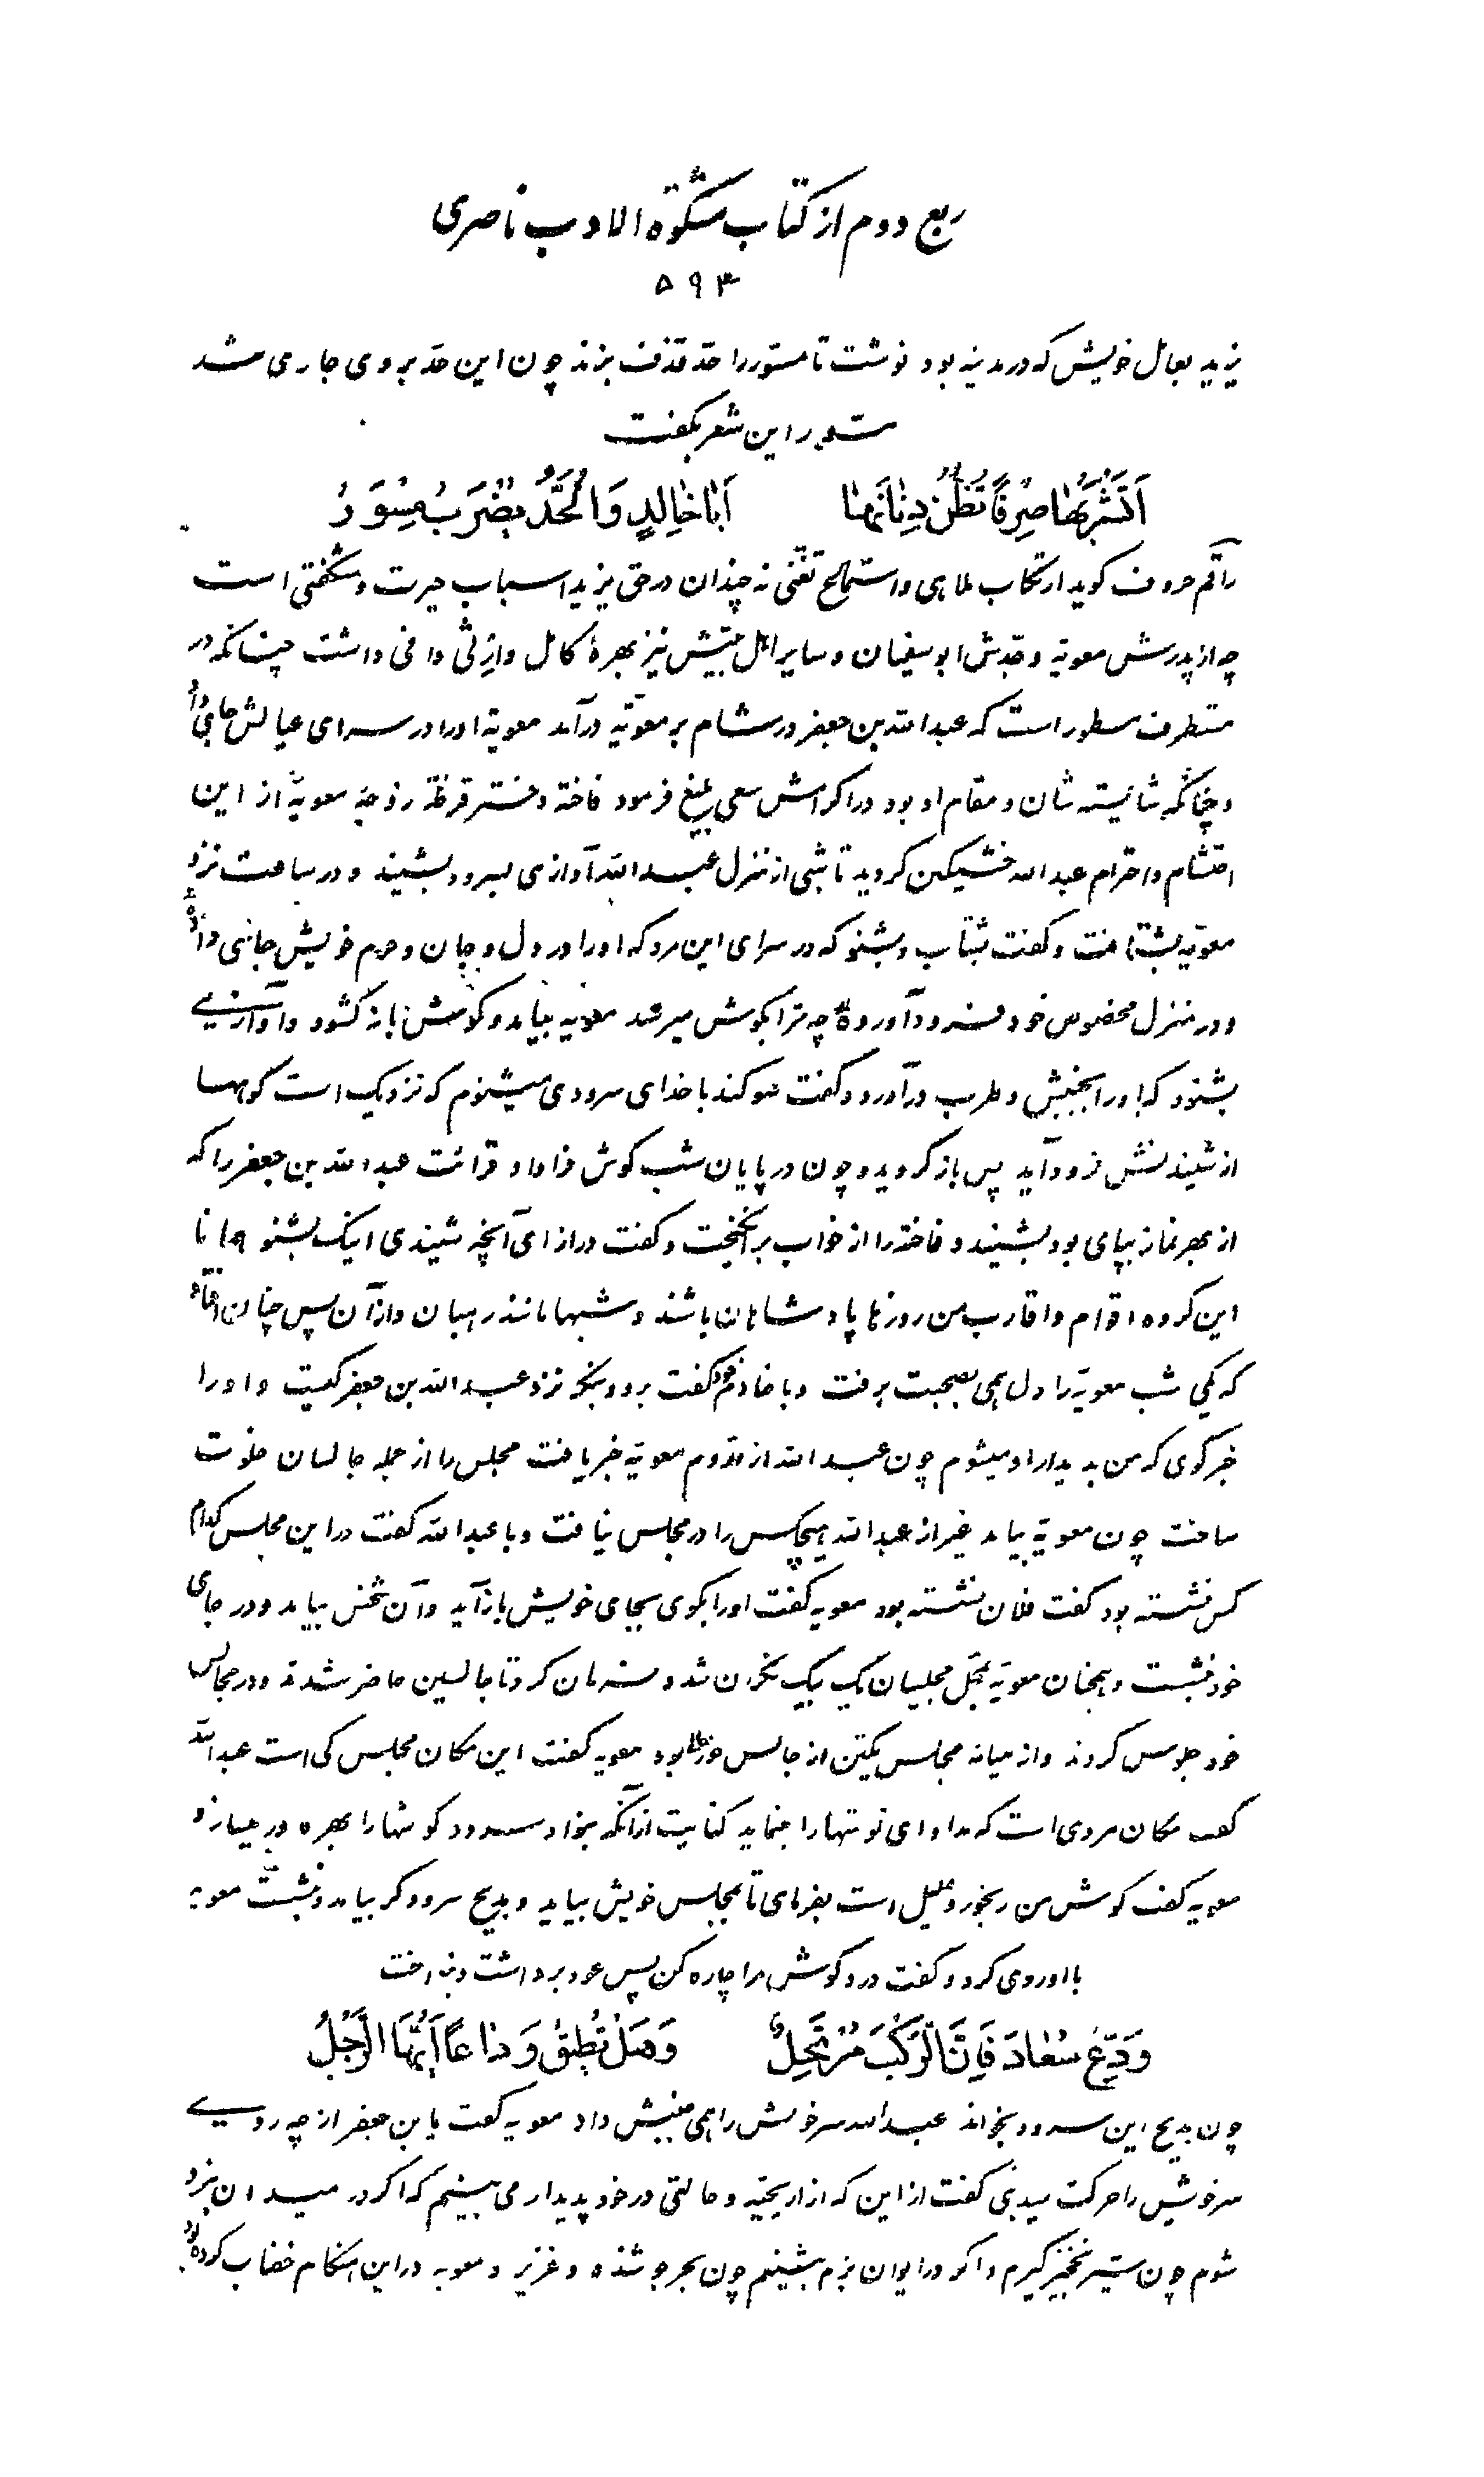 ربع دوم از کتاب مشکوة الادب ناصری
۵۹۳
یزید بعامل خویش که در مدینه بود نوشت تا مسور را حد قذف بزند چون این حد بر وی جاری شد
مسور این شعر بگفت
اَتَشْرَبُهٰا صِرْفًا تَظُنُّ دِنٰانَهٰا اَبٰا خٰالِدٍ وَالْحَدُّ یُضْرَبُ مِسْوَرُ
راقم حروف کوید ارتکاب ملاهی و استماع تغنی نه چندان در حق یزید اسباب حیرت و شکفتی است
چه از پدرش معویة و جدش ابو سفیان و سایر اهل بیتش نیز بهرهٔ کامل وارثی وافی داشت چنانکه در
مستطرف مسطور است که عبد الله بن جعفر در شام بر معویة در آمد معویة او را در سرای عیالش جای داد
و چنانکه شایسته شان و مقام او بود در اکرامش سعی بلیغ فرمود فاخته دختر قرظة زوجهٔ معویة از این
احتشام و احترام عبد الله خشمکین کردید تا شبی از منزل عبد الله آوازی بسرود بشنید و در ساعت نزد
معویة بشتافت و کفت بشتاب و بشنو که در سرای این مرد که او را در دل و جان و حرم خویش جای دادهٔ
و در منزل مخصوص خود فرود آوردهٔ چه ترا بکوش میرسد معویه بیامد و کوش باز کشود و آوازی
بشنود که او را بجنبش و طرب در آورد و کفت سوکند با خدای سرودی میشنوم که نزدیک است کوهها
از شنیدنش فرود آید پس باز کردید و چون در پایان شب کوش فرا داد و قرائت عبد الله بن جعفر را که
از بهر نماز بپای بود بشنید و فاخته را از خواب بر انکیخت و کفت در ازای آنچه شنیدی اینک بشنو همانا
این کروه اقوام و اقارب من روزها پادشاهان باشند و شبها مانند رهبان و از آن پس چنان افتاد
که یکی شب معویة را دل همی بصحبت برفت و با خادم خود کفت برو و بنکر نزد عبد الله بن جعفر کیست و او را
خبر کوی که من بدیدار او میشوم چون عبد الله از قدوم معویة خبر یافت مجلس را از جمله جالسان خلوت
ساخت چون معویة بیامد غیر از عبد الله هیچکس را در مجلس نیافت و با عبد الله کفت در این مجلس کدام
کس نشسته بود کفت فلان نشسته بود معویه کفت او را بکوی بجای خویش باز آید و آن شخص بیامد و در جای
خود نشست و همچنان معویة بمحل مجلسیان یک بیک نکران شد و فرمان کرد تا جالسین حاضر شدند و در مجالس
خود جلوس کردند و از میانه مجلس یکتن از جالس خود خالی بود معویه کفت این مکان مجلس کی است عبد الله
کفت مکان مردی است که مداوای کوشها را مینماید کنایت از آنکه بنوا و سرود کوشها را بهره ور میسازد
معویه کفت کوش من رنجور و علیل است بفرمای تا بمجلس خویش بیاید و بدیح سرود کر بیامد و بنشست معویه
با او روی کرد و کفت درد کوش مرا چاره کن پس عود برداشت و بنواخت
وَدِّعْ سُعٰادَ فَاِنَّ الرَّکْبَ مُرْتَحِلٌ وَهَلْ تُطیقُ وَدٰاعًا اَیُّهَا الرَّجُلُ
چون بدیح این سرود بخواند عبد الله سر خویش را همی جنبش داد معویه کفت یا بن جعفر از چه روی
سر خویش را حرکت میدهی کفت از این که از اریحیّه و حالتی در خود پدیدار می بینم که اکر در میدان نبرد
شوم چون شیر نخجیر کیرم و اکر در ایوان بزم بنشینم چون بحر جوشنده و غزیر و معویه در این هنکام خضاب کرده بود